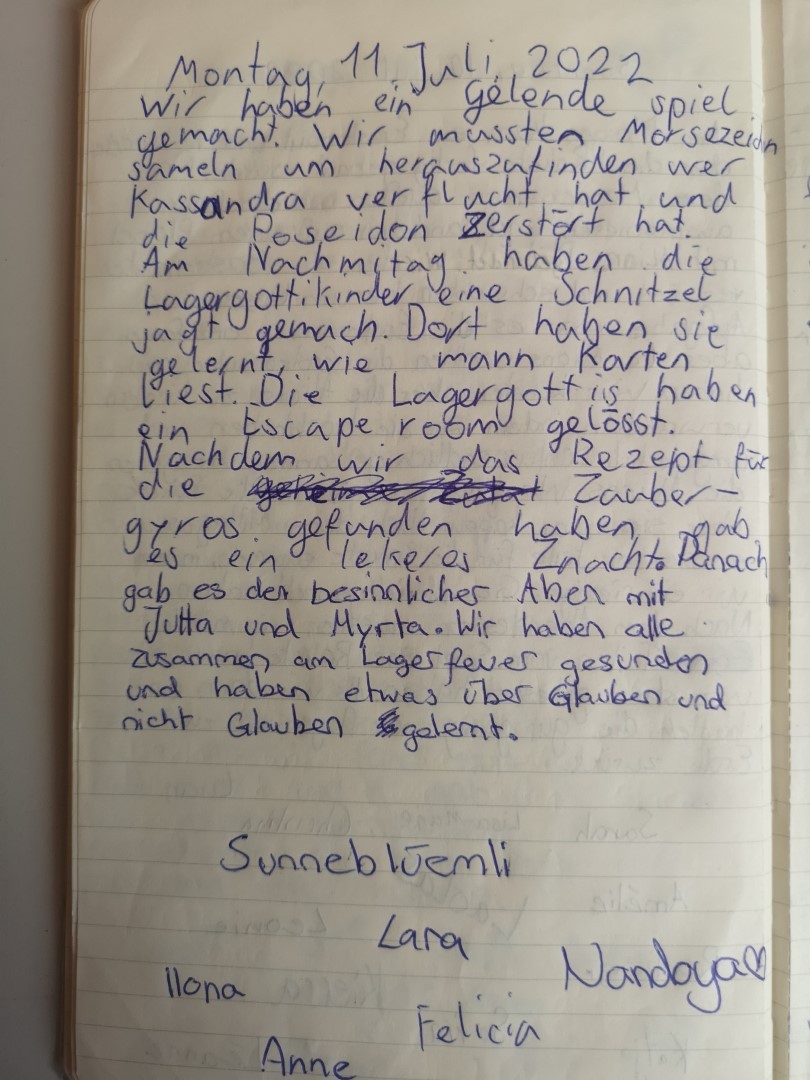 Montag, 11. Juli, 2022
Wir haben ein Gelende spiel
gemacht. Wir mussten Morsezeichn
sameln um herauszufinden wer
Kassandra verflucht hat und
die Poseidon Zerstört hat.
Am Nachmitag haben die
Lagergottikinder eine Schnitzel
jagt gemach. Dort haben sie
gelernt, wie mann Karten
liest. Die Lagergottis haben
ein Escape room gelösst.
Nachdem wir das Rezept für
die Zauber-
gyros gefunden haben gab
es ein lekeres Znacht. Danach
gab es den besinnlicher Aben mit
Jutta und Myrta. Wir haben alle
zusammen am Lagerfeuer gesunden
und haben etwas über Glauben und
nicht Glauben gelernt.
Sunneblüemli
Lara
Nandoya♡
Ilona
Felicia
Anne